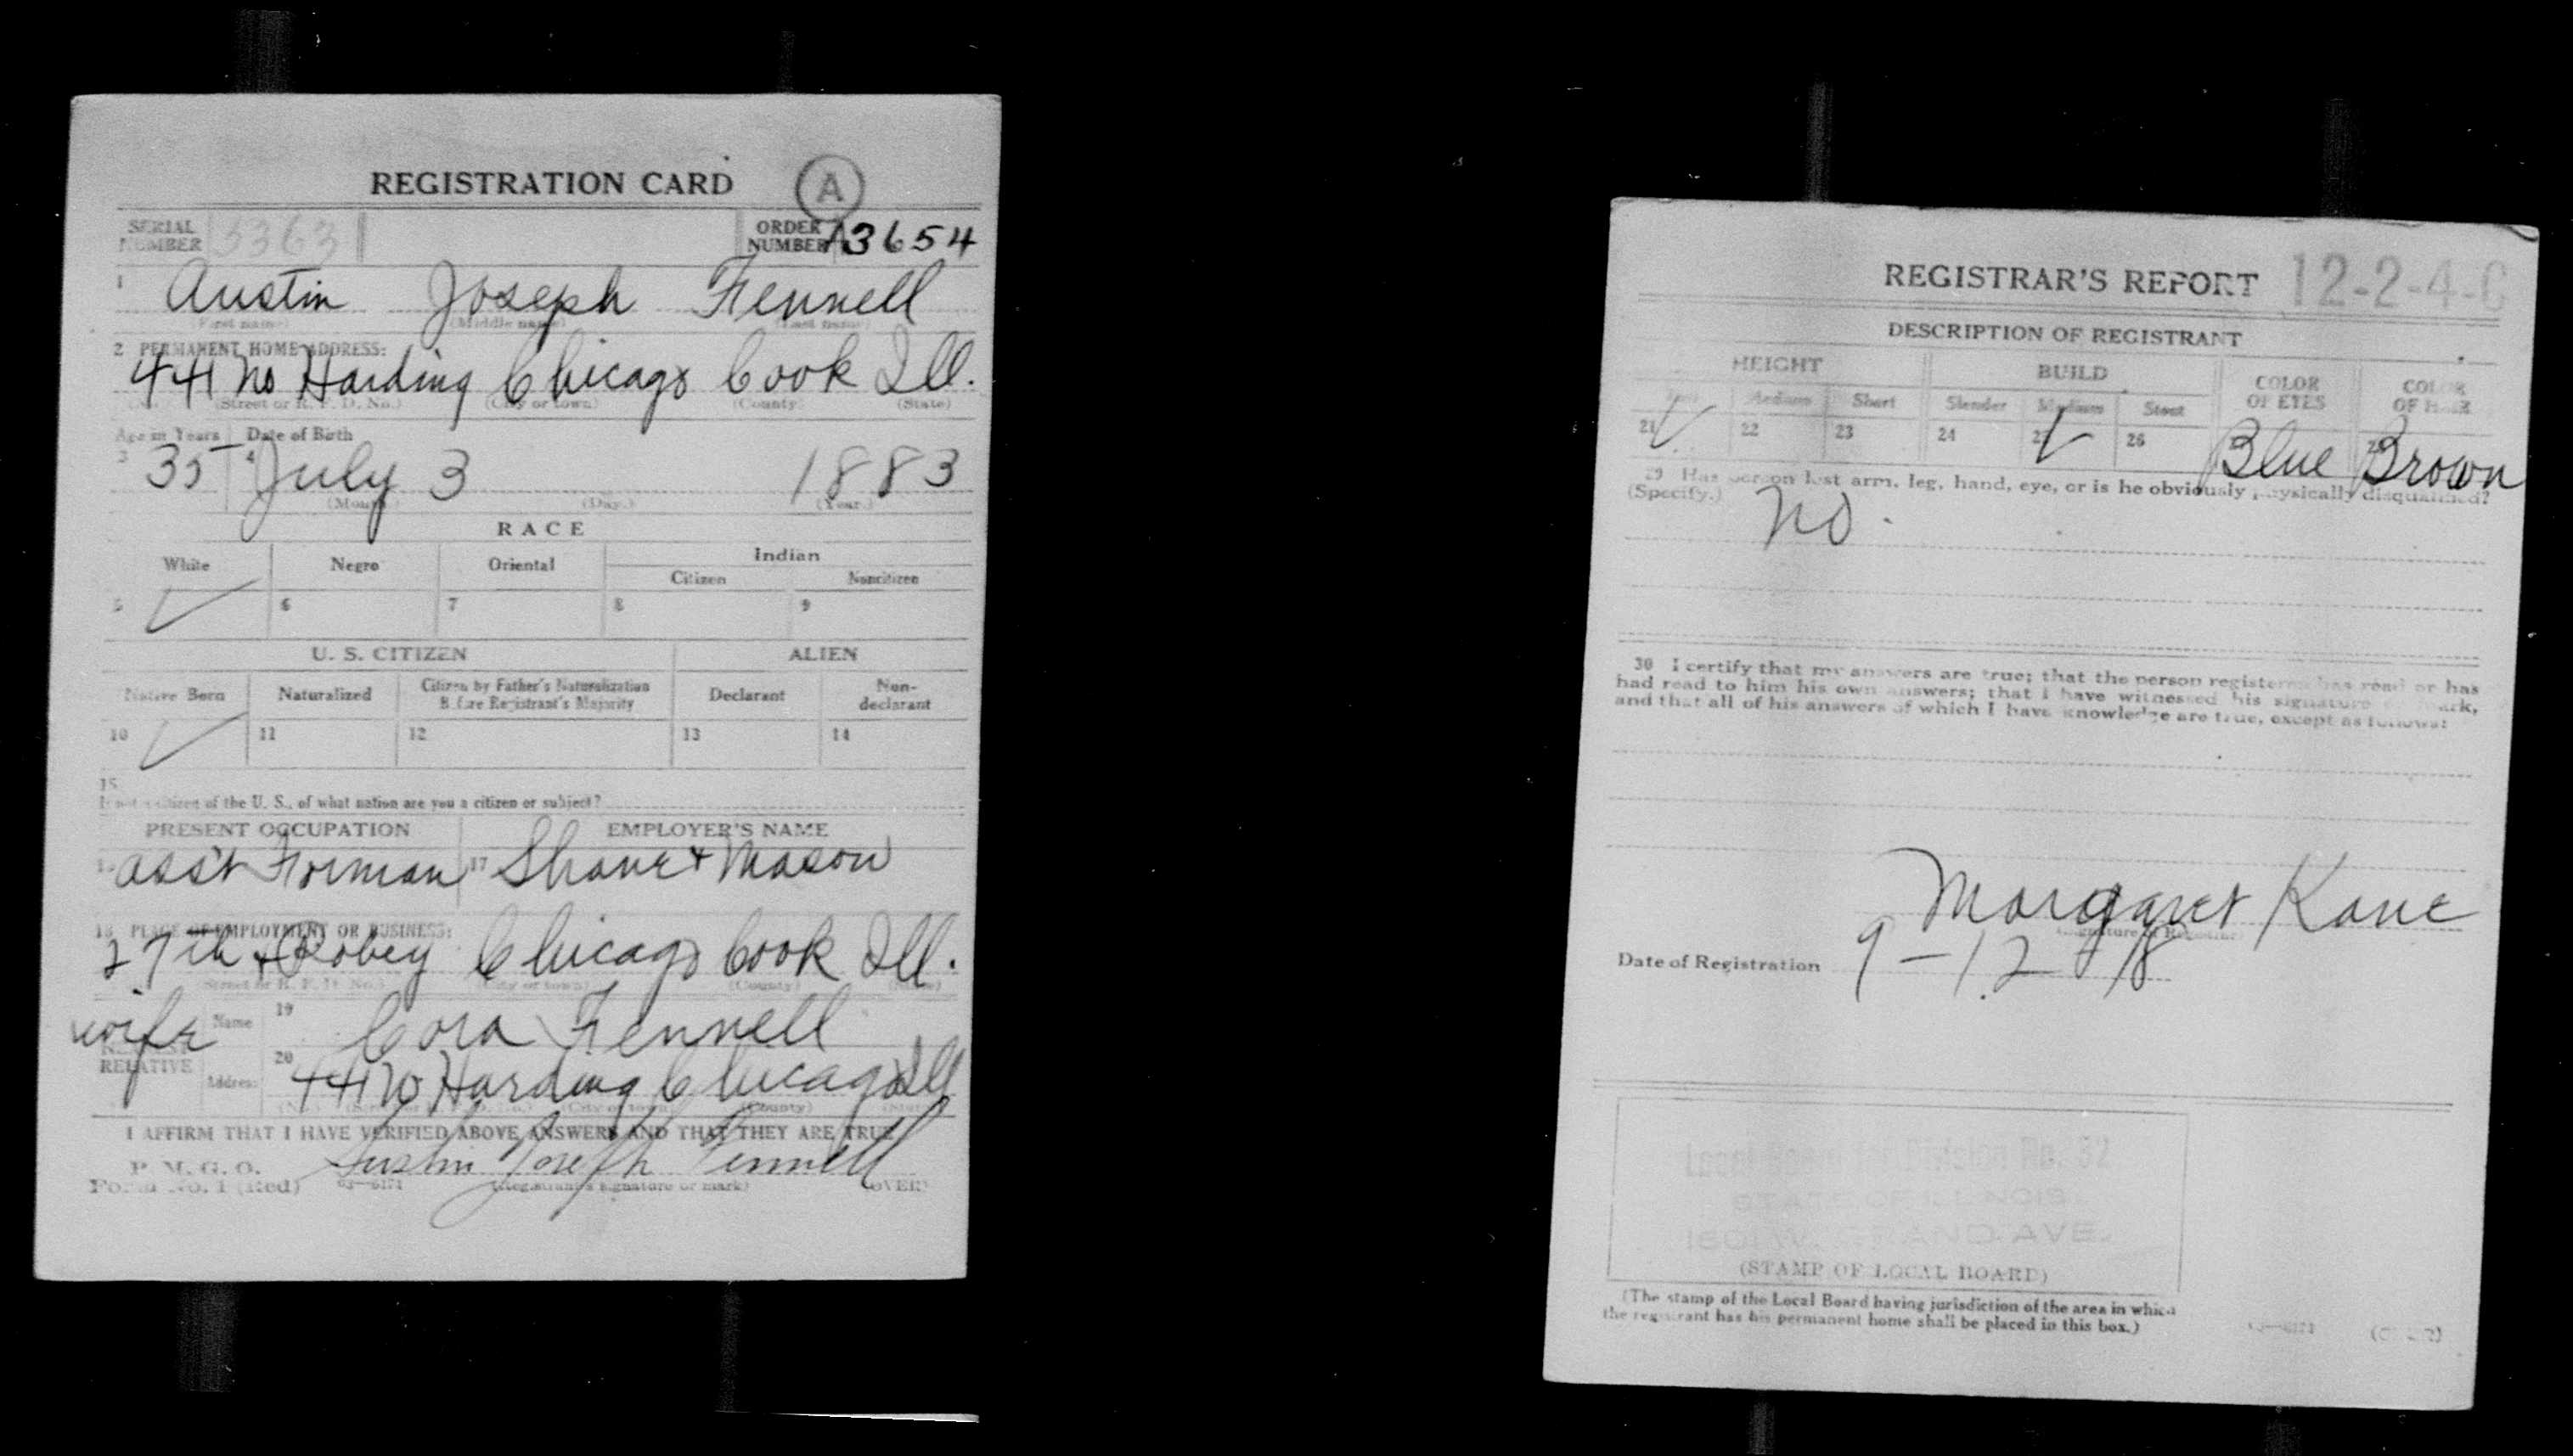 REGISTRATION CARD A
SERIAL NUMBER 5363 ORDER NUMBER A3654
1 Austin Joseph Fennell
(First name) (Middle name) (Last name)
2 PERMANENT HOME ADDRESS:
441 No Harding Chicago Cook Ill.
(No.) (Street or R. F. D. No.) (City or town) (County) (State)
Age in Years Date of Birth
3 35 4 July 3 1883
(Month.) (Day.) (Year.)
RACE
White Negro Oriental Indian
Citizen Noncitizen
5 ✓ 6 7 8 9
U. S. CITIZEN ALIEN
Native Born Naturalized Citizen by Father's Naturalization Before Registrant's Majority Declarant Non-declarant
10 ✓ 11 12 13 14
15
If not a citizen of the U. S., of what nation are you a citizen or subject?
PRESENT OCCUPATION EMPLOYER'S NAME
16 ass't Forman 17 Shane + Mason
18 PLACE OF EMPLOYMENT OR BUSINESS:
27th + Robey Chicago Cook Ill.
(Street or R. F. D. No.) (City or town) (County) (State)
wife Name 19 Cora Fennell
NEAREST RELATIVE
Address 20 441 No Harding Chicago Ill
(No.) (City or town) (County) (State)
I AFFIRM THAT I HAVE VERIFIED ABOVE ANSWERS AND THAT THEY ARE TRUE
P. M. G. O.
Form No. 1 (Red) 03—6171 Austin Joseph Fennell
(Registrant's signature or mark) (OVER)
REGISTRAR'S REPORT 12-2-4-C
DESCRIPTION OF REGISTRANT
HEIGHT BUILD COLOR OF EYES COLOR OF HAIR
Tall Medium Short Slender Medium Stout
21 ✓ 22 23 24 25 ✓ 26 Blue Brown
29 Has person lost arm, leg, hand, eye, or is he obviously physically disqualified?
(Specify.) No.
30 I certify that my answers are true; that the person registered has read or has
had read to him his own answers; that I have witnessed his signature or mark,
and that all of his answers of which I have knowledge are true, except as follows:
Margaret Kane
(Signature of Registrar)
Date of Registration 9-12-18
Local Board for Division No. 32
STATE OF ILLINOIS
1601 W. GRAND AVE.
(STAMP OF LOCAL BOARD)
(The stamp of the Local Board having jurisdiction of the area in which
the registrant has his permanent home shall be placed in this box.)
03—6171 (OVER)